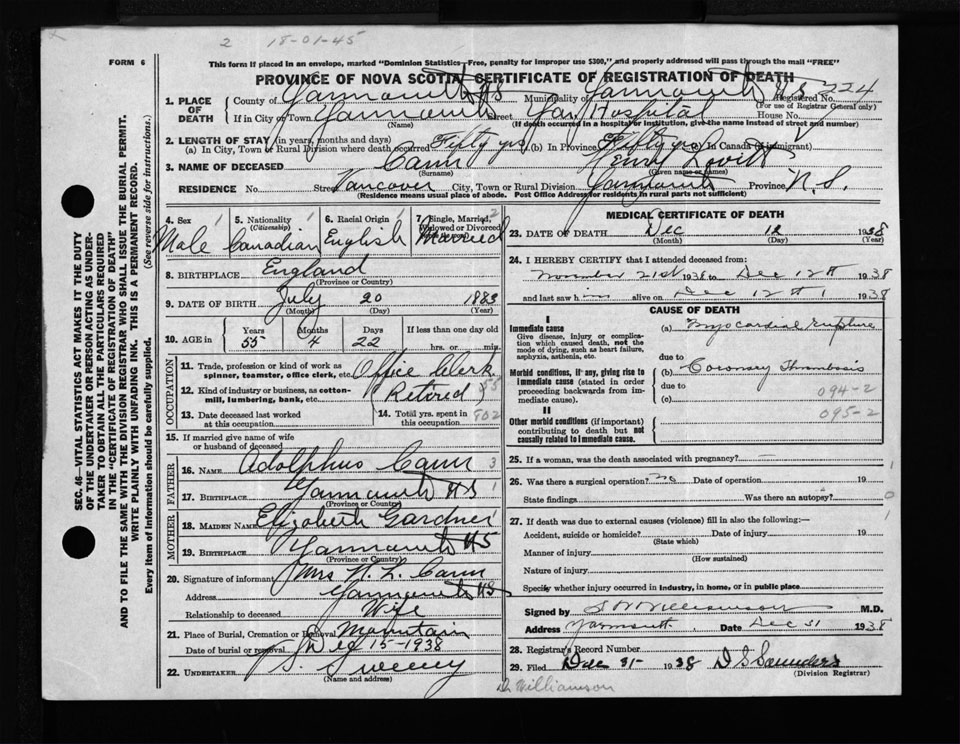 2 18-01-45
FORM 6
This form if placed in an envelope, marked "Dominion Statistics—Free, penalty for improper use $300," and properly addressed will pass through the mail "FREE"
PROVINCE OF NOVA SCOTIA, CERTIFICATE OF REGISTRATION OF DEATH
1. PLACE OF DEATH County of Yarmouth NS Municipality of Yarmouth NS Registered No. 224
(For use of Registrar General only)
If in City or Town Yarmouth Street Yar Hospital House No.
(Name) (If death occurred in a hospital or institution, give the name instead of street and number)
2. LENGTH OF STAY (in years, months and days)
(a) In City, Town or Rural Division where death occurred Fifty yrs (b) In Province Fifty yrs (c) In Canada (if immigrant)
3. NAME OF DECEASED Cann Henry Lovitt
(Surname) (Given name or names)
RESIDENCE No. Street Vancover City, Town or Rural Division Yarmouth Province N.S.
(Residence means usual place of abode. Post Office Address for residents in rural parts not sufficient)
4. Sex 1 Male
5. Nationality (Citizenship) 1 Canadian
6. Racial Origin 1 English
7. Single, Married, Widowed or Divorced 2 Married
8. BIRTHPLACE England
(Province or Country)
9. DATE OF BIRTH July 20 1883
(Month) (Day) (Year)
10. AGE in Years 55 Months 4 Days 22 If less than one day old hrs. or min.
OCCUPATION
11. Trade, profession or kind of work as spinner, teamster, office clerk, etc. Office Clerk
12. Kind of industry or business, as cotton-mill, lumbering, bank, etc. Retired 55
13. Date deceased last worked at this occupation
14. Total yrs. spent in this occupation 902
15. If married give name of wife or husband of deceased
FATHER
16. NAME Adolphus Cann 3
17. BIRTHPLACE Yarmouth NS 1
(Province or Country)
MOTHER
18. MAIDEN NAME Elizabeth Gardner
19. BIRTHPLACE Yarmouth NS
(Province or Country)
20. Signature of informant Mrs H. L. Cann
Address Yarmouth NS
Relationship to deceased Wife
21. Place of Burial, Cremation or Removal Mountain
Date of burial or removal Dec 15-1938
22. UNDERTAKER Sweeny
(Name and address)
MEDICAL CERTIFICATE OF DEATH
23. DATE OF DEATH Dec 12 1938
(Month) (Day) (Year)
24. I HEREBY CERTIFY that I attended deceased from:
November 21st 1938 to Dec 12th 1938
and last saw him alive on Dec 12th 1938
CAUSE OF DEATH
I
Immediate cause (a) Myocardial Rupture
Give disease, injury or complication which caused death, not the mode of dying, such as heart failure, asphyxia, asthenia, etc.
due to
Morbid conditions, if any, giving rise to immediate cause (stated in order proceeding backwards from immediate cause). (b) Coronary Thrombosis
due to 094-2
(c)
II 095-2
Other morbid conditions (if important) contributing to death but not causally related to immediate cause.
25. If a woman, was the death associated with pregnancy? —
26. Was there a surgical operation? no Date of operation 19
State findings Was there an autopsy? 0
27. If death was due to external causes (violence) fill in also the following:—
Accident, suicide or homicide? Date of injury 19
(State which)
Manner of injury
(How sustained)
Nature of injury
Specify whether injury occurred in industry, in home, or in public place
Signed by Williamson M.D.
Address Yarmouth Date Dec 31 1938
28. Registrar's Record Number
29. Filed Dec 31- 1938 D S Saunders
(Division Registrar)
Dr Williamson
SEC. 46—VITAL STATISTICS ACT MAKES IT THE DUTY
OF THE UNDERTAKER OR PERSON ACTING AS UNDER-
TAKER TO OBTAIN ALL THE PARTICULARS REQUIRED
IN THE "CERTIFICATE OF REGISTRATION OF DEATH"
AND TO FILE THE SAME WITH THE DIVISION REGISTRAR WHO SHALL ISSUE THE BURIAL PERMIT.
WRITE PLAINLY WITH UNFADING INK. THIS IS A PERMANENT RECORD.
Every item of information should be carefully supplied. (See reverse side for instructions.)